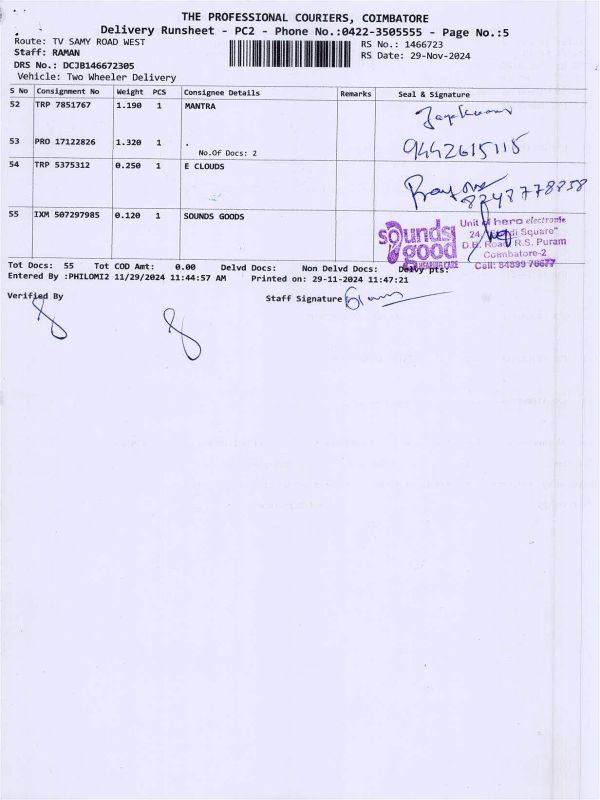 THE PROFESSIONAL COURIERS, COIMBATORE
Delivery Runsheet - PC2 - Phone No.:0422-3505555 - Page No.:5
Route: TV SAMY ROAD WEST
RS No.: 1466723
Staff: RAMAN
RS Date: 29-Nov-2024
DRS No.: DCJB146672305
Vehicle: Two Wheeler Delivery
S No Consignment No Weight PCS Consignee Details Remarks Seal & Signature
52 TRP 7851767 1.190 1 MANTRA
53 PRO 17122826 1.320 1 . 9442615115
No.Of Docs: 2
54 TRP 5375312 0.250 1 E CLOUDS
8248778858
55 IXM 507297985 0.120 1 SOUNDS GOODS
sounds good
HEARING CARE
Unit of hero electronic
Square"
D.B. Road R.S. Puram
Coimbatore-2
Cell: 84899 76677
Tot Docs: 55 Tot COD Amt: 0.00 Delvd Docs: Non Delvd Docs: Delvy pts:
Entered By :PHILOMI2 11/29/2024 11:44:57 AM Printed on: 29-11-2024 11:47:21
Verified By Staff Signature